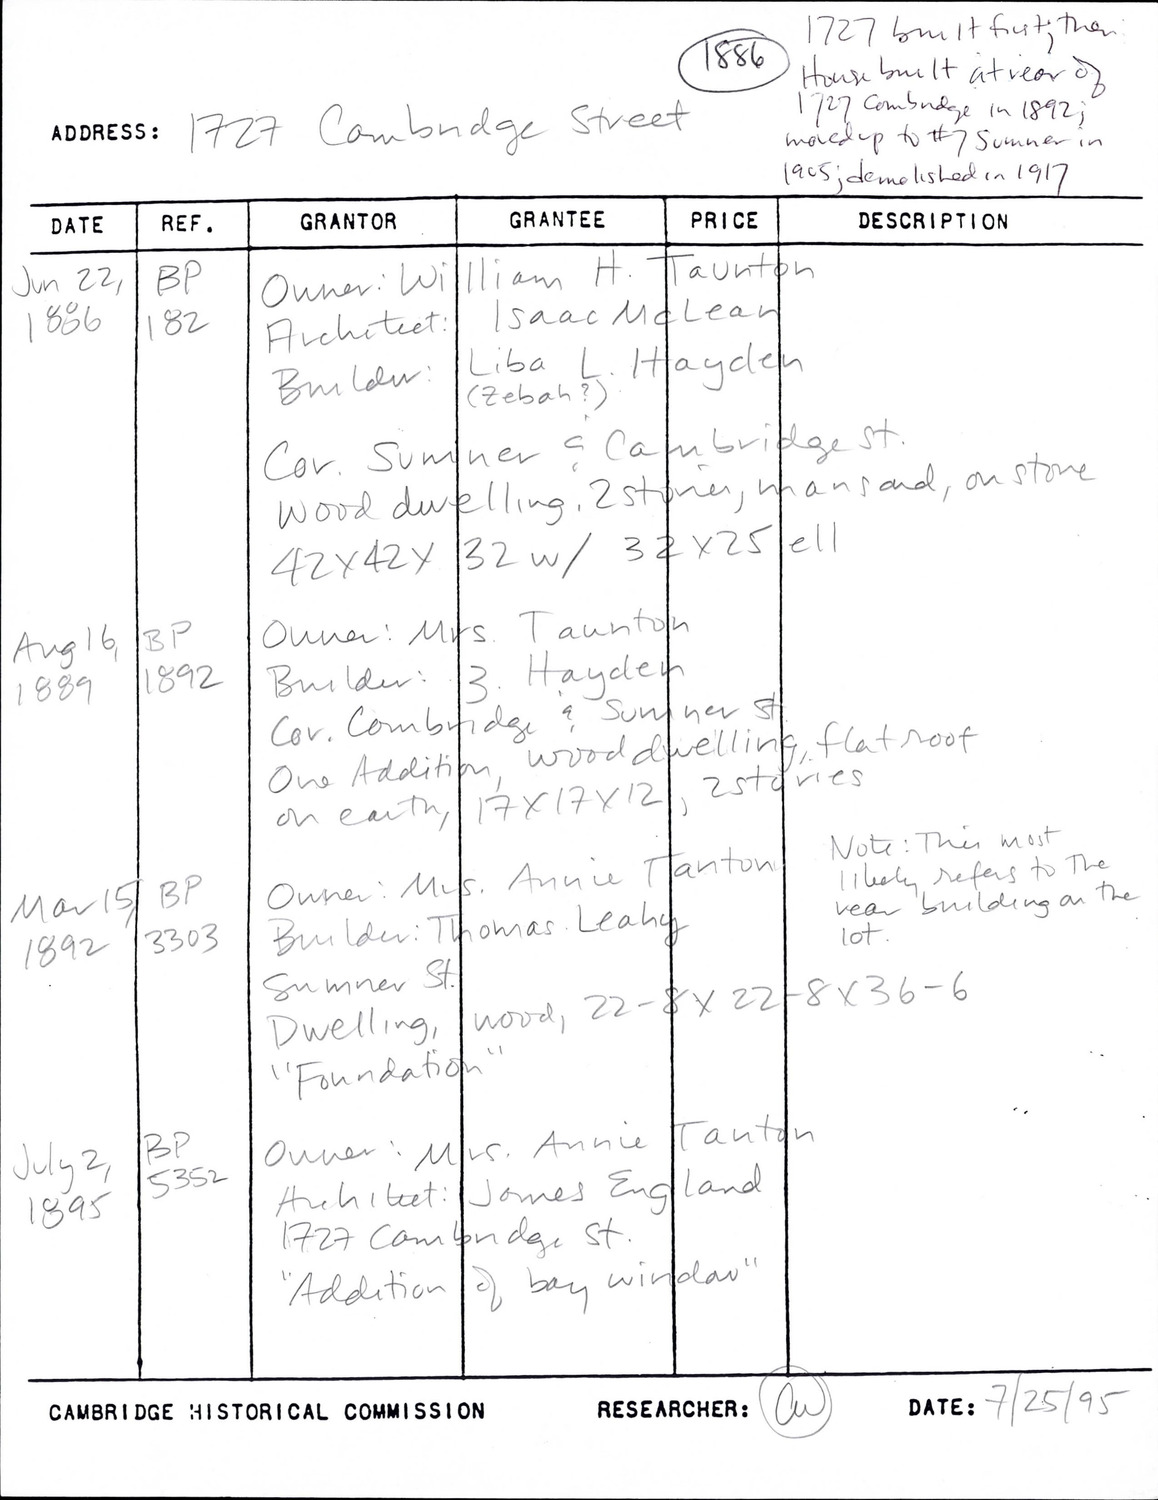 1886
1727 built first; then
House built at rear of
1727 Cambridge in 1892;
moved up to #7 Sumner in
1905; demolished in 1917
ADDRESS: 1727 Cambridge Street
DATE REF. GRANTOR GRANTEE PRICE DESCRIPTION
Jun 22, 1886 BP 182
Owner: William H. Taunton
Architect: Isaac McLean
Builder: Liba L. Hayden
(Zebah?)
Cor. Sumner & Cambridge St.
Wood dwelling, 2 stories, mansard, on stone
42x42x32 w/ 32x25 ell
Aug 16, 1889 BP 1892
Owner: Mrs. Taunton
Builder: Z. Hayden
Cor. Cambridge & Sumner St
One Addition, wood dwelling, flat roof
on earth, 17x17x12, 2 stories
Mar 15, 1892 BP 3303
Owner: Mrs. Annie Tanton
Builder: Thomas Leahy
Sumner St.
Dwelling, wood, 22-8x22-8x36-6
"Foundation"
Note: This most
likely refers to the
rear building on the
lot.
July 2, 1895 BP 5352
Owner: Mrs. Annie Tanton
Architect: James England
1727 Cambridge St.
"Addition of bay window"
CAMBRIDGE HISTORICAL COMMISSION RESEARCHER: CW DATE: 7/25/95